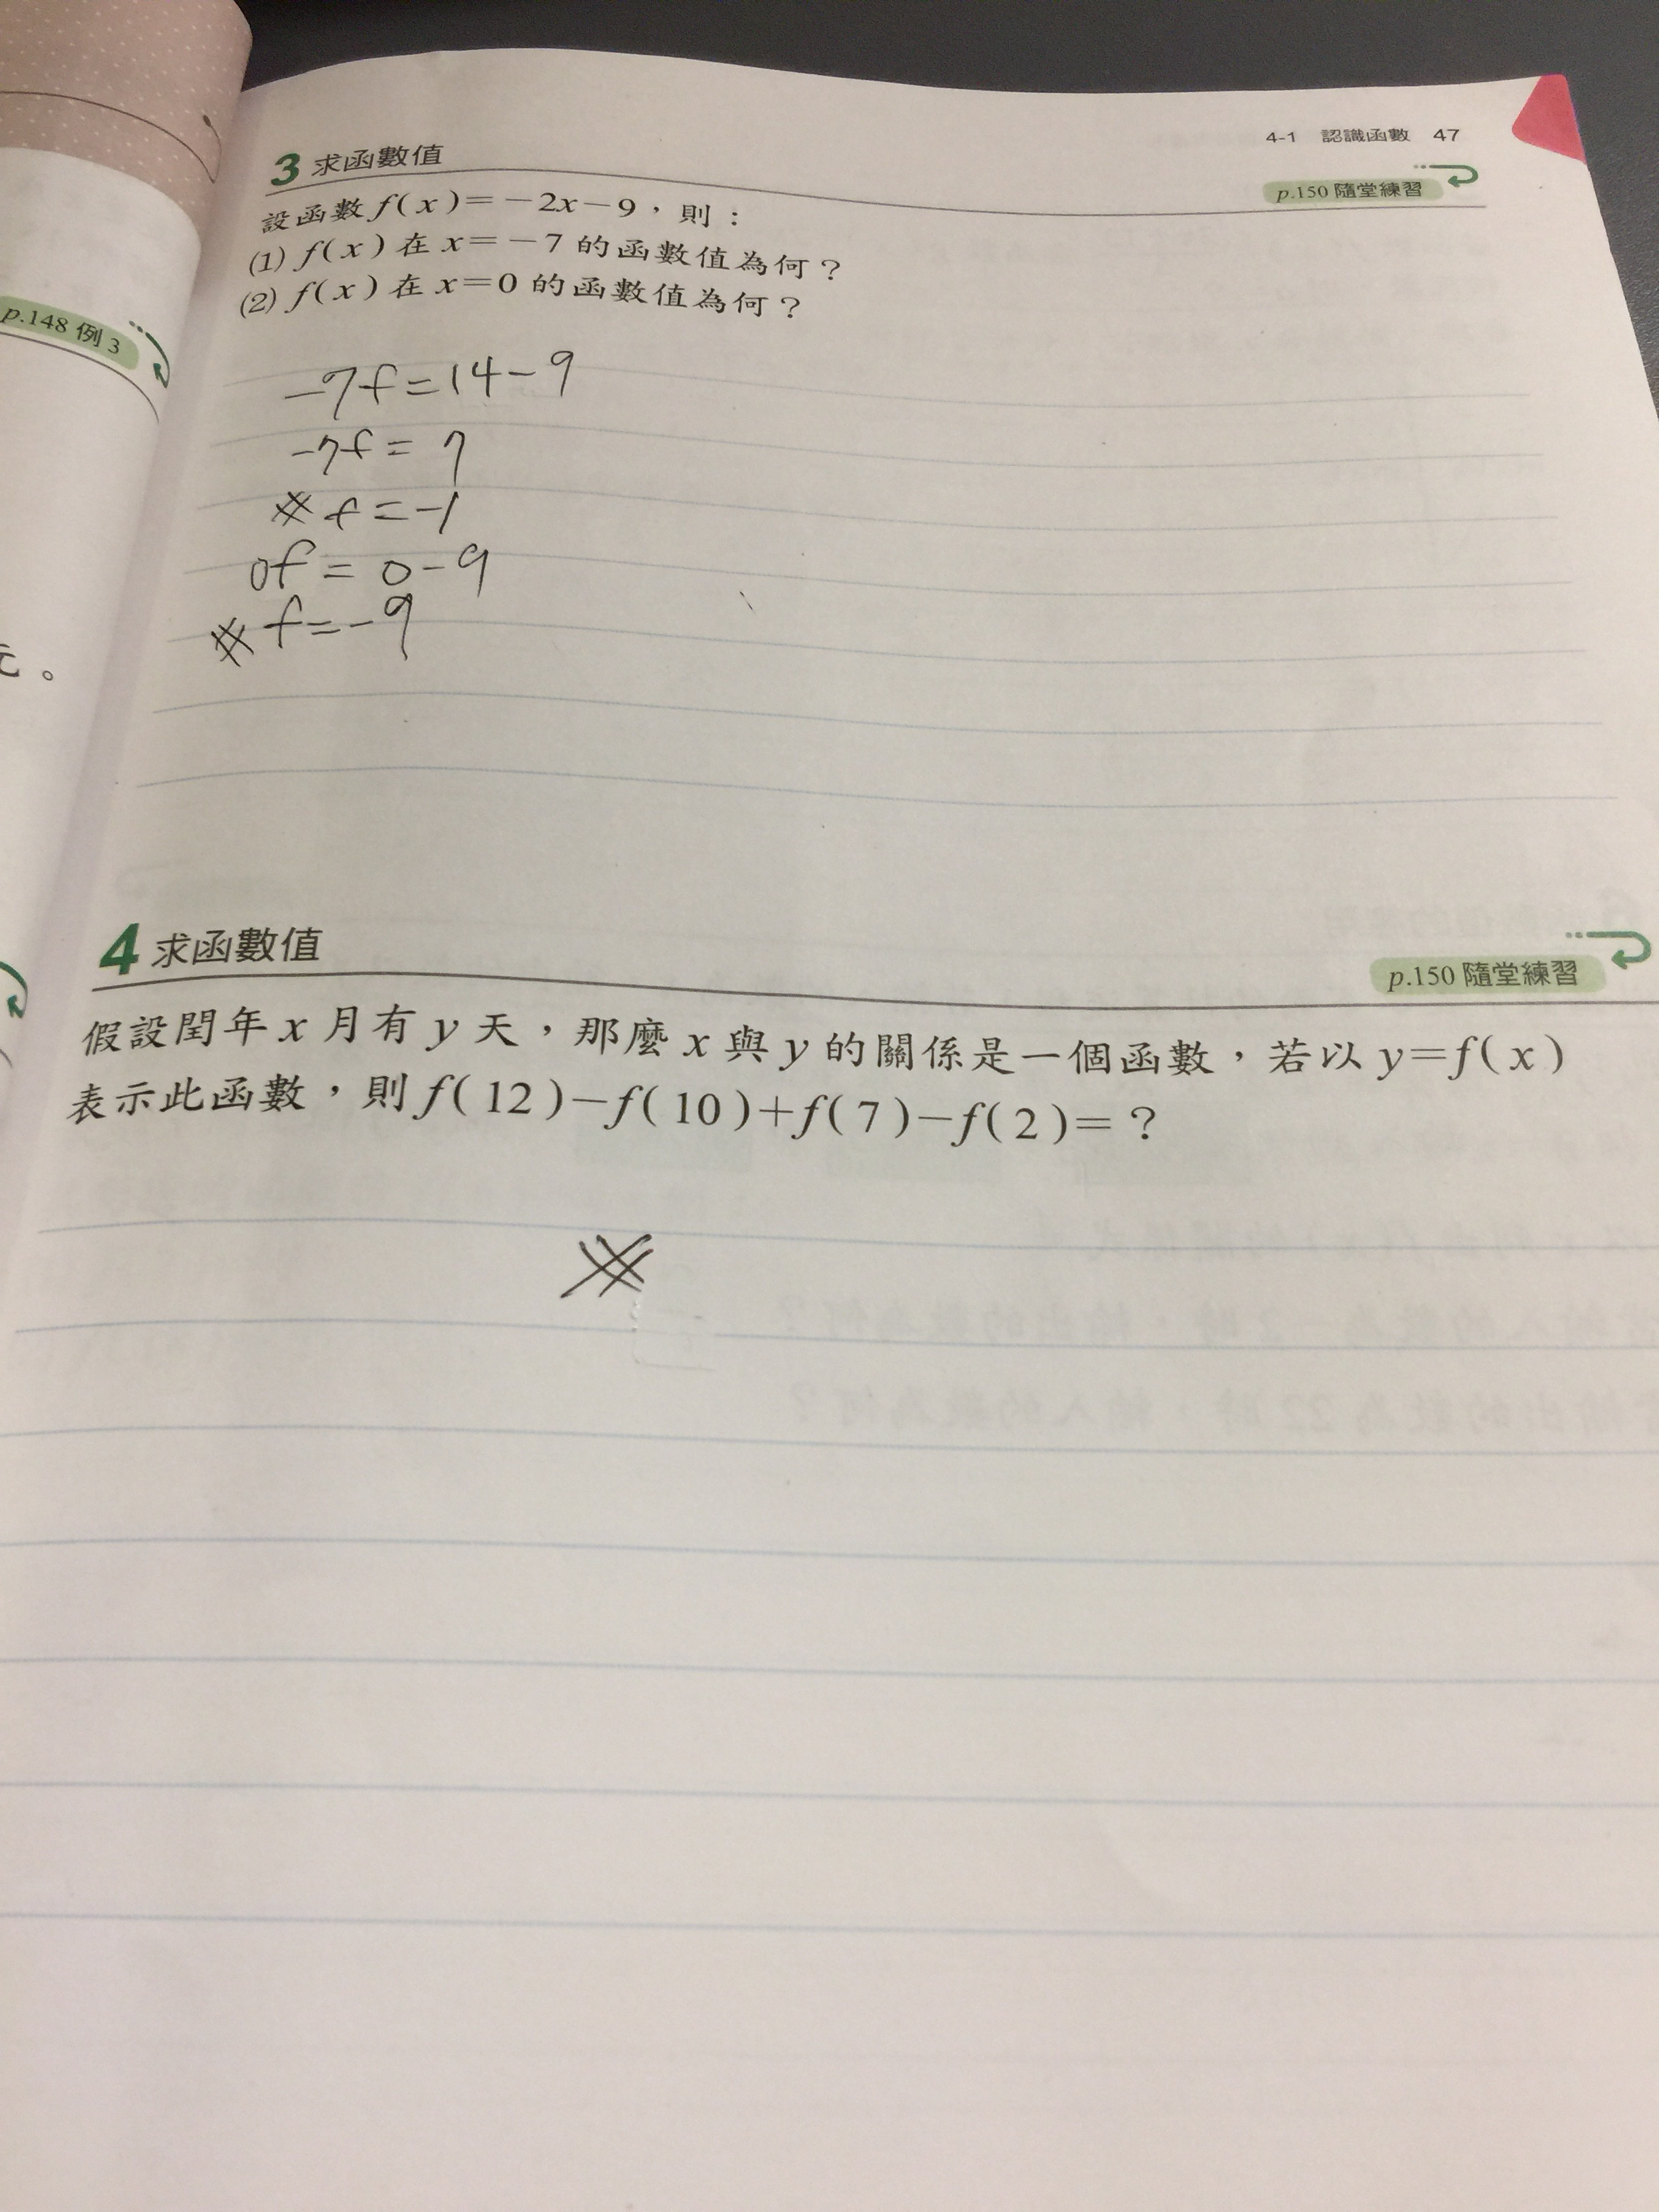 4-1 認識函數 47
3 求函數值
p.150 隨堂練習
設函數 f(x)=-2x-9,則:
(1) f(x) 在 x=-7 的函數值為何?
(2) f(x) 在 x=0 的函數值為何?
p.148 例 3
-7f=14-9
-7f= 7
# f=-1
0f = 0-9
# f=-9
元。
4 求函數值
p.150 隨堂練習
假設閏年 x 月有 y 天,那麼 x 與 y 的關係是一個函數,若以 y=f(x)
表示此函數,則 f(12)-f(10)+f(7)-f(2)=?
#